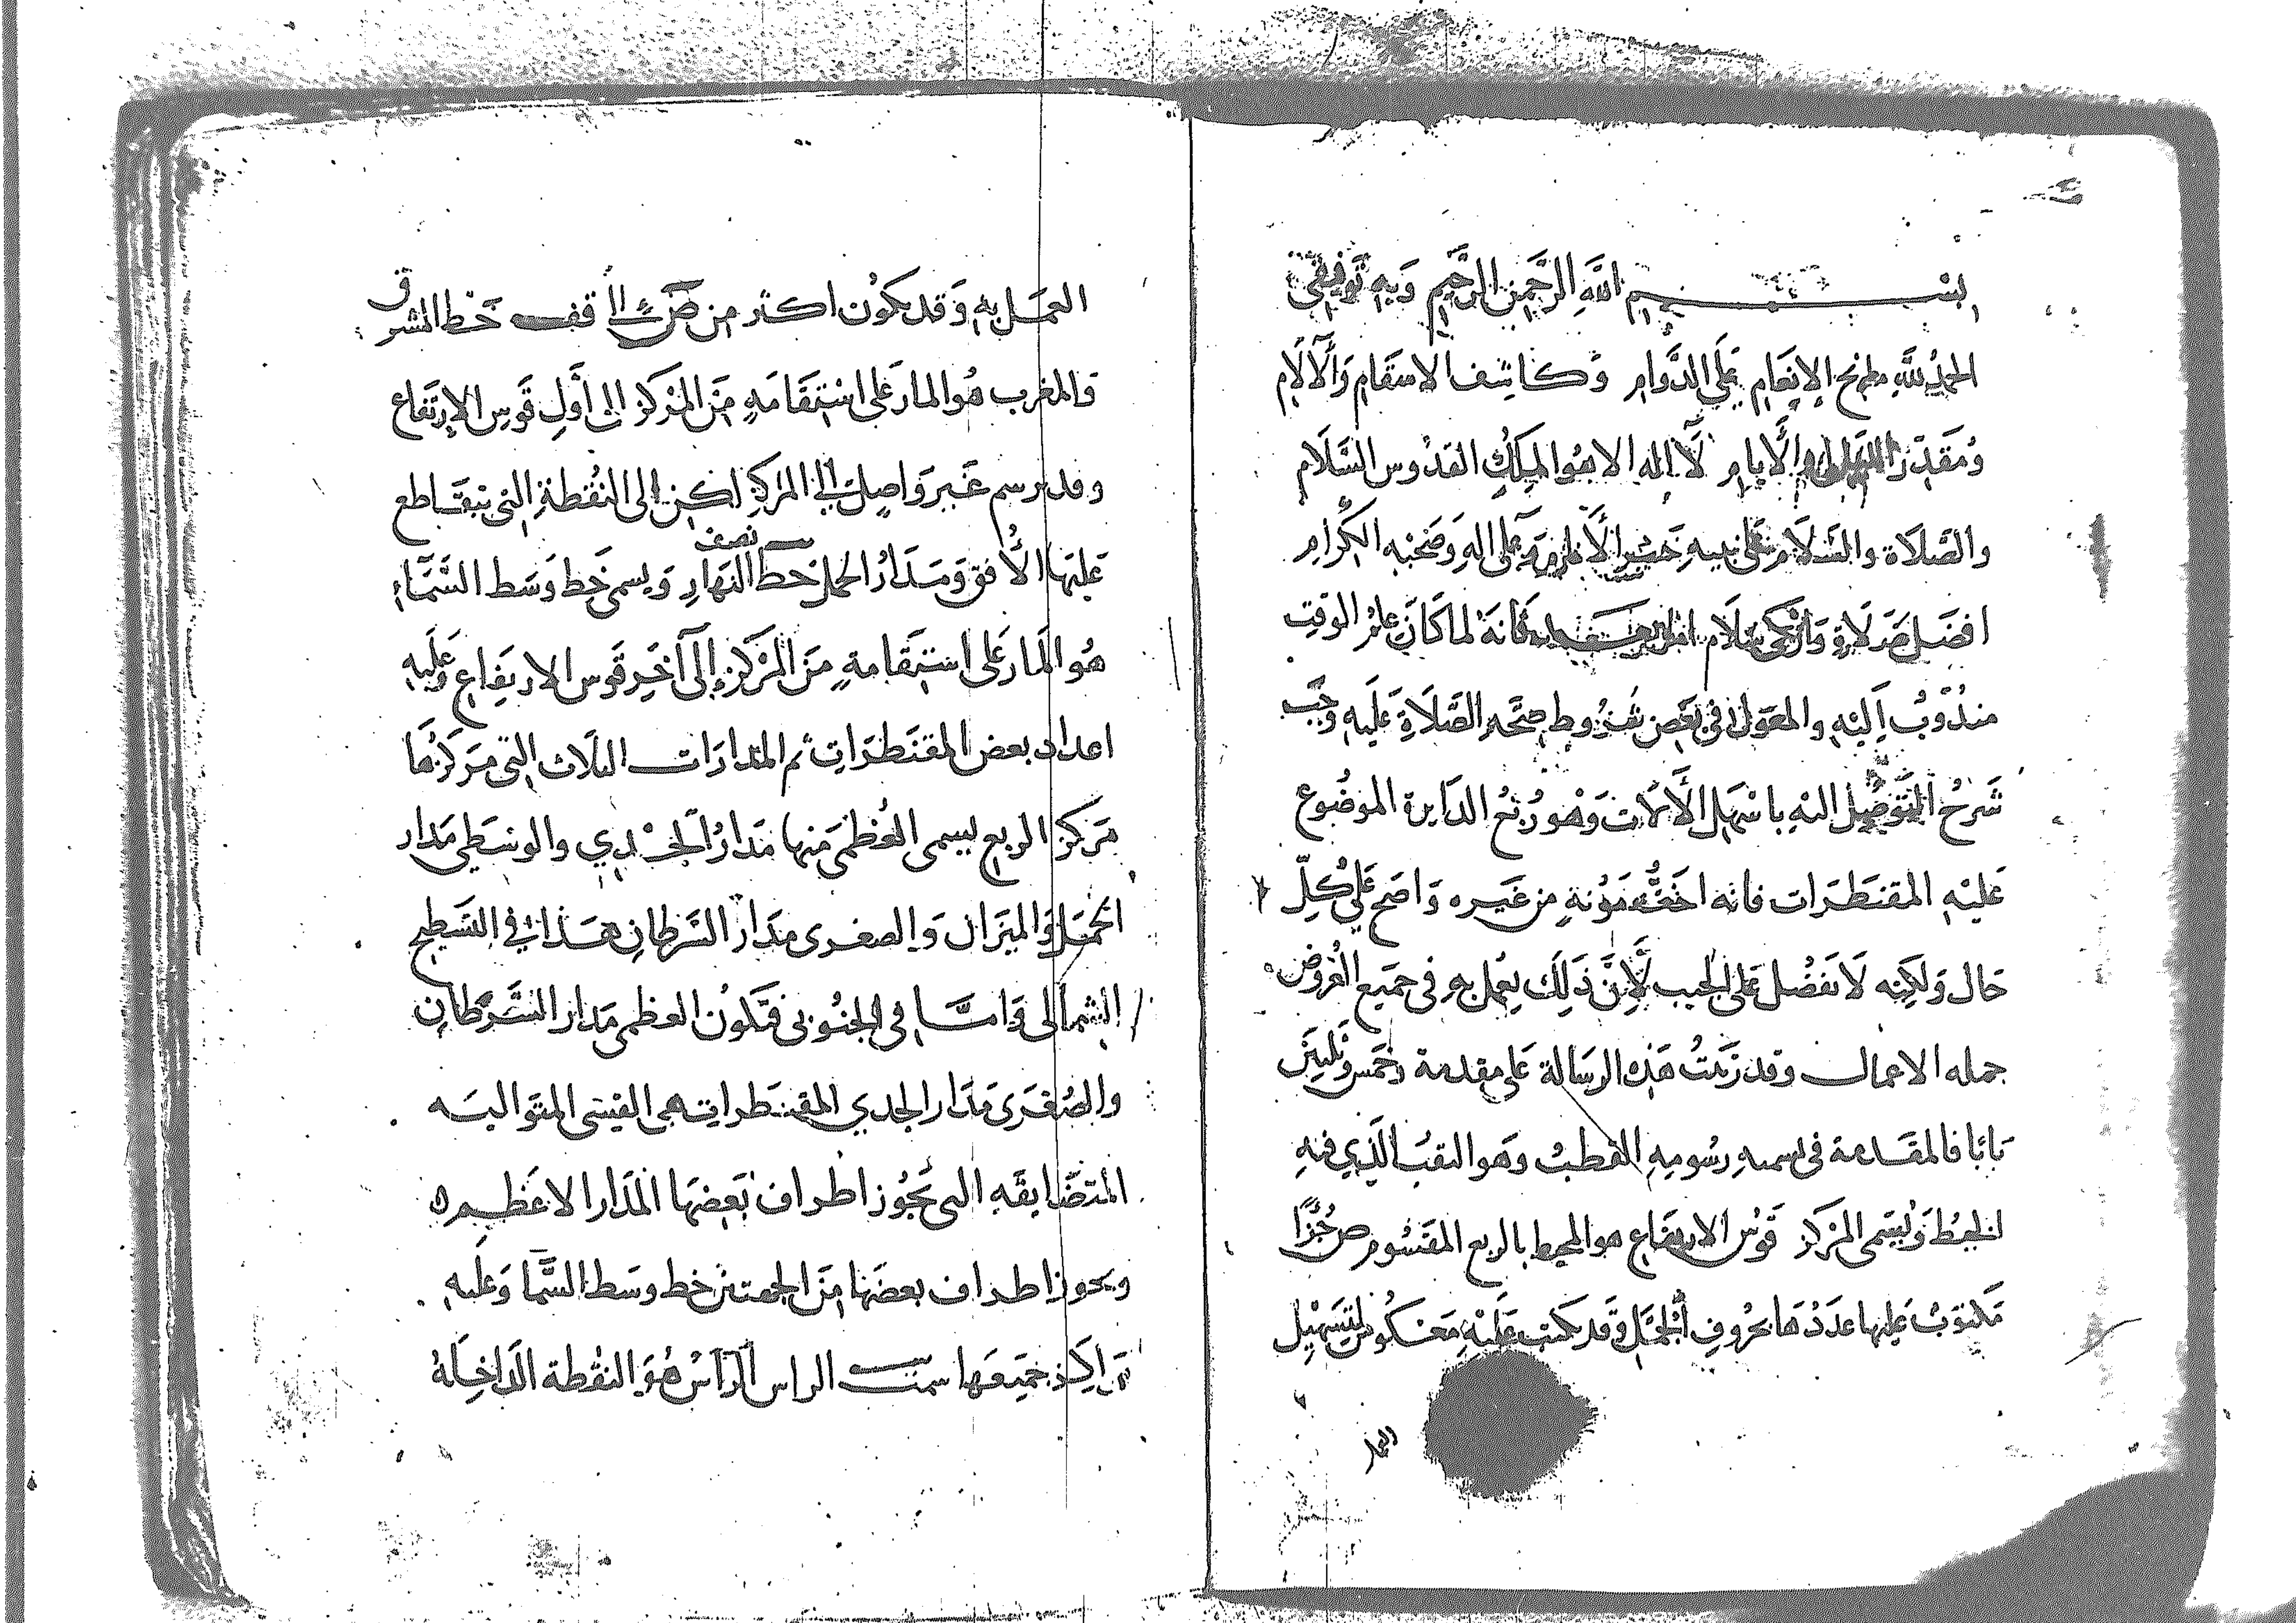 بسم الله الرحمن الرحيم وبه توفيقي
الحمد لله الانعام على الدوام وكاشف الاسقام والآلام
ومقدر والأيام لا اله الا هو الملك القدوس السلام
والصلاة والسلام على نبيه خير الأنام وعلى اله وصحبه الكرام
افضل صلاة وأزكى سلام فانه لما كان علم الوقت
مندوب اليه والمعول في بعض شروط صحة الصلاة عليه وجب
شرح التوصل اليه باسهل الألات وهو ربع الدايرة الموضوع
عليه المقنطرات فانه اخف مؤنة من غيره واضح على كل
حال ولكنه لا تفضل على الجيب لأن ذلك يعمل به في جميع العروض
جمله الاعمال وقد رتبت هذه الرسالة على مقدمة وخمس وثلثين
بابا فالمقدمة في اسميه رسومه القطب وهو الثقب الذي فيه
الخيط ويسمى المركز قوس الارتفاع هو المحيط بالربع المقسوم ص جزأ
مكتوب عليها عددها بحروف الجمل وقد يكتب عليه معكوس لتسهيل
العمل
العمل به وقد يكون اكثر من ص الأفق خط المشرق
والمغرب هو المار على استقامه من المركز الى أول قوس الارتفاع
وقد يرسم غير واصل الى المركز لكن الى النقطة التي يتقاطع
عليها الأفق ومدار الحمل خط نصف النهار ويسمى خط وسط السماء
هو المار على استقامة من المركز إلى آخر قوس الارتفاع وعليه
اعداد بعض المقنطرات ثم المدارات الثلاث التي مركزها
مركز الربع يسمى العظمى منها مدار الجدي والوسطى مدار
الحمل والميزان والصغرى مدار السرطان هذا في التسطيح
الشمالى واما في الجنوبى فتكون العظمى مدار السرطان
والصغرى مدار الجدي المقنطرات هى القسى المتواليه
المتضايقه التى تجوز اطراف بعضها المدار الاعظم
ويجوز اطراف بعضها من الجهتين خط وسط السما وعليه
مراكز جميعها سمت الراس الرأس هو النقطة الداخلة